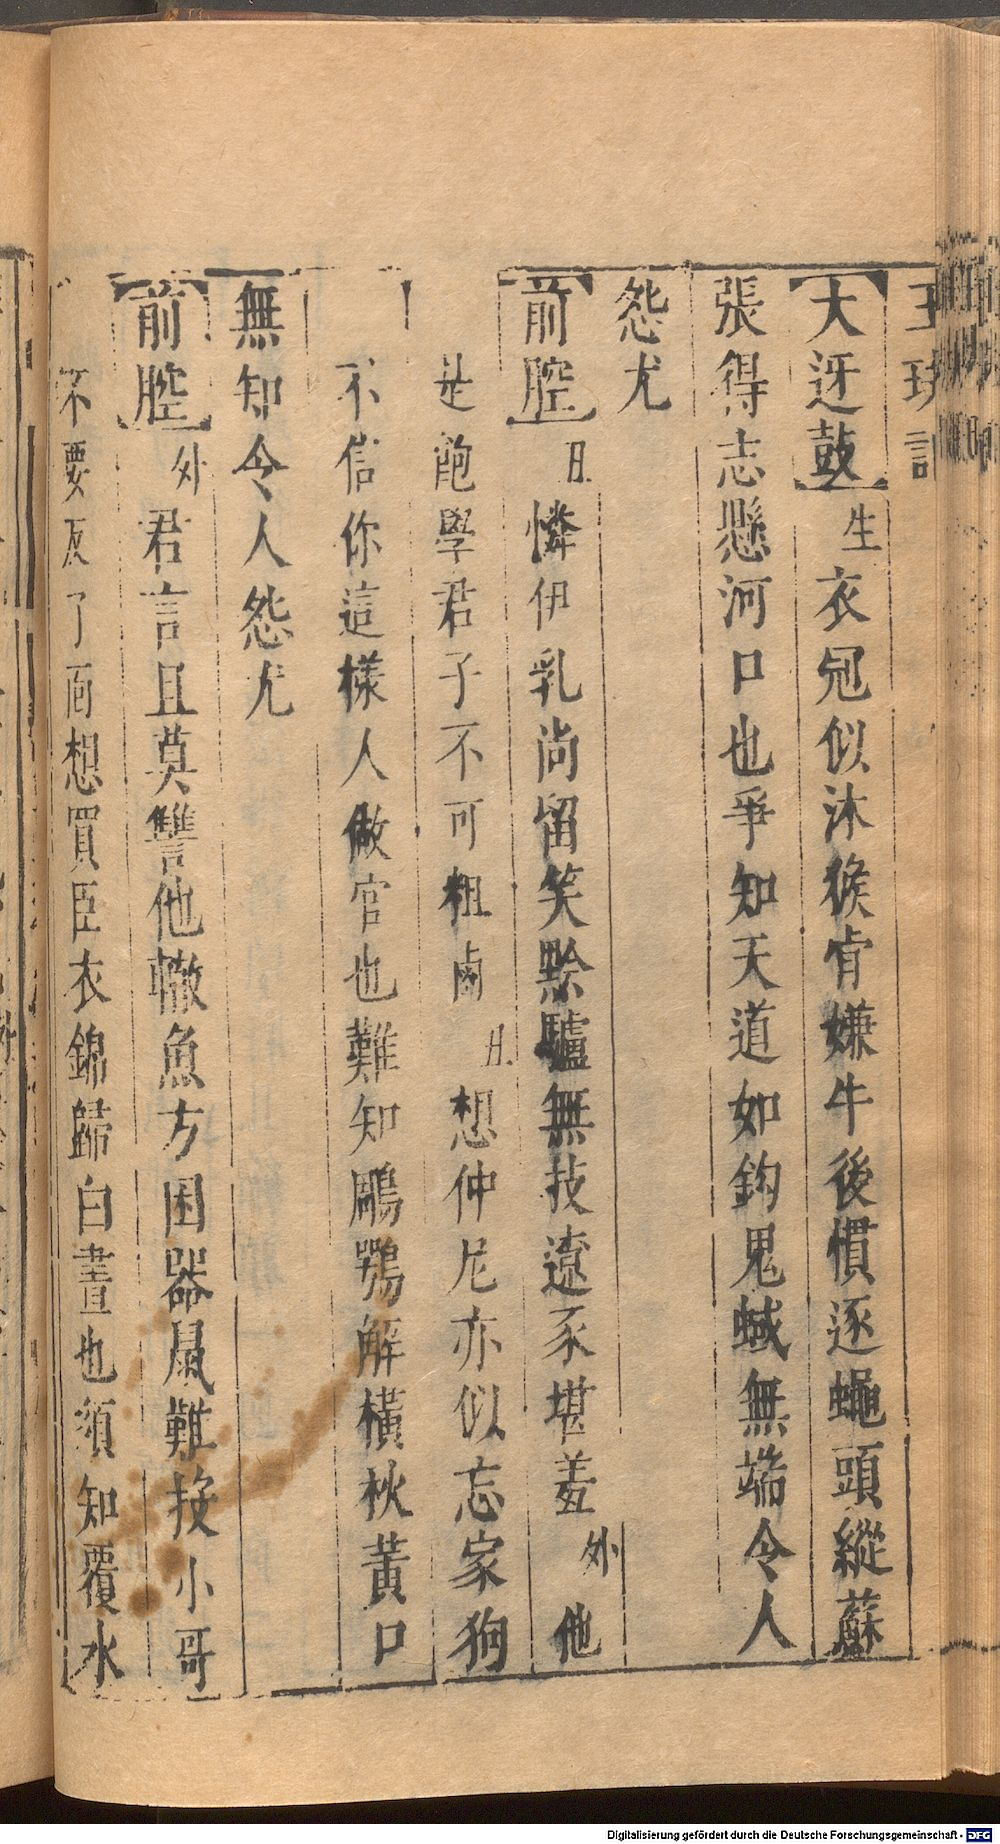 玉玦記
【大迓鼓】生衣冠似沐猴肯嫌牛後慣逐蠅頭縱蘇
張得志懸河口也爭知天道如鈎鬼蜮無端令人
怨尤
【前腔】丑憐伊乳尚留笑黔驢無技遼豕堪羞外他
是飽學君子不可粗鹵丑想仲尼亦似忘家狗
不信你這樣人做官也難知鵰鶚解橫秋黃口
無知令人怨尤
【前腔】外君言且莫讐他轍魚方困器鼠難投小哥
不要反了面想買臣衣錦歸白晝也須知覆水
Digitalisierung gefördert durch die Deutsche Forschungsgemeinschaft - DFG